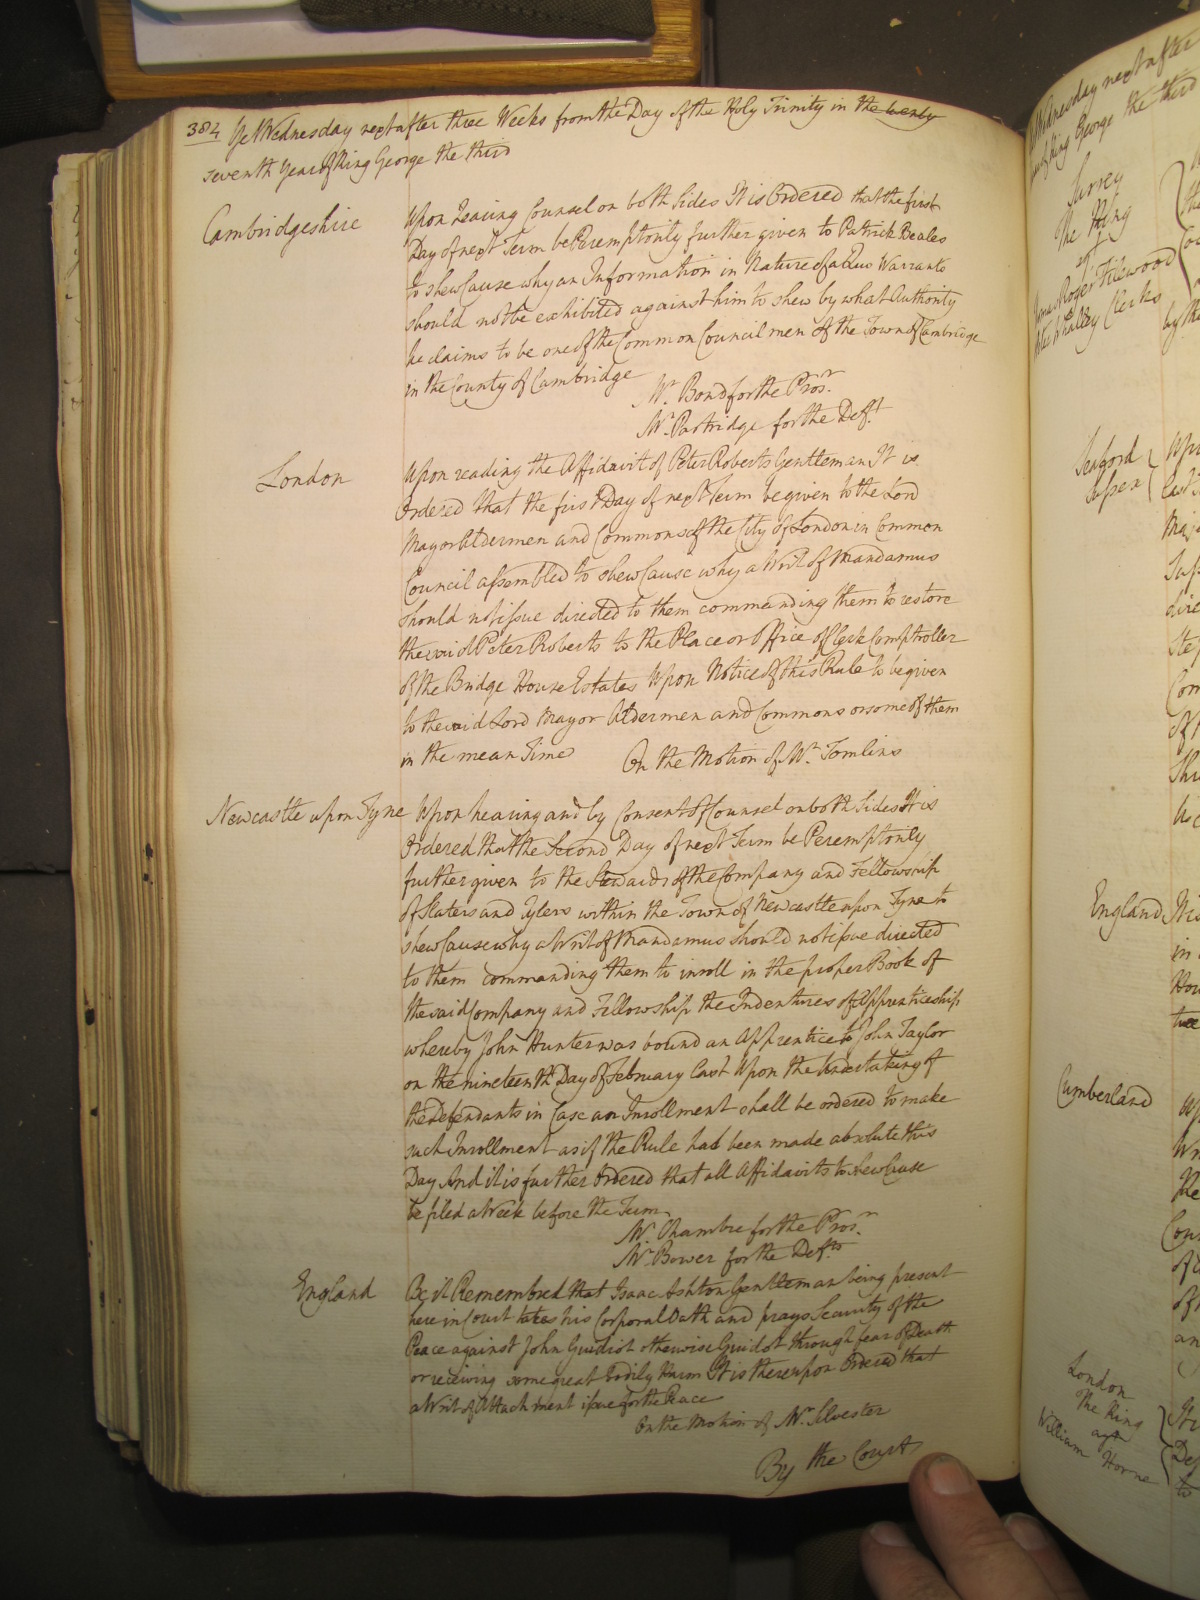 384 Yet Wednesday next after three Weeks from the Day of the Holy Trinity in the twenty
seventh Year of King George the third
Cambridgeshire
Upon hearing Counsel on both Sides It is Ordered that the first
Day of next Term be Peremptorily further given to Patrick Beales
to shew Cause why an Information in Nature of a Quo Warranto
should not be exhibited against him to shew by what Authority
he claims to be one of the Common Council men of the Town of Cambridge
in the County of Cambridge
Mr. Bond for the Prosr.
Mr. Partridge for the Deft.
London
Upon reading the Affidavit of Peter Roberts Gentleman It is
Ordered that the first Day of next Term be given to the Lord
Mayor Aldermen and Commons of the City of London in Common
Council assembled to shew Cause why a Writ of Mandamus
should not issue directed to them commanding them to restore
the said Peter Roberts to the Place or Office of Clerk Comptroller
of the Bridge House Estates Upon Notice of this Rule to be given
to the said Lord Mayor Aldermen and Commons or some of them
in the mean Time
On the Motion of Mr. Tomlins
Newcastle upon Tyne
Upon hearing and by Consent of Counsel on both Sides It is
Ordered that the Second Day of next Term be Peremptorily
further given to the Stewards of the Company and Fellowship
of Slaters and Tylers within the Town of Newcastle upon Tyne to
shew Cause why a Writ of Mandamus should not issue directed
to them commanding them to inroll in the proper Book of
the said Company and Fellowship the Indentures of Apprenticeship
whereby John Hunter was bound an Apprentice to John Taylor
on the nineteenth Day of February last Upon the Undertaking of
the Defendants in Case an Inrollment shall be ordered to make
such Inrollment as if the Rule had been made absolute this
Day And it is further Ordered that all Affidavits to shew Cause
be filed a Week before the Term
Mr. Chambre for the Prosr.
Mr. Bower for the Defts.
England
Be it Remembred that Isaac Ashton Gentleman being present
here in Court takes his Corporal Oath and prays Security of the
Peace against John Guidiot otherwise Guidot through fear of Death
or receiving some great Bodily Harm It is thereupon Ordered that
a Writ of Attachment issue for the Peace
On the Motion of Mr. Silvester
By the Court
Wednesday next after
of King George the third
Surrey
The King
agt
Filewood
Whalley Clerks
by the
Seaford
Sussex
England
It is
in
Cumberland
London
The King
agt
William Horne